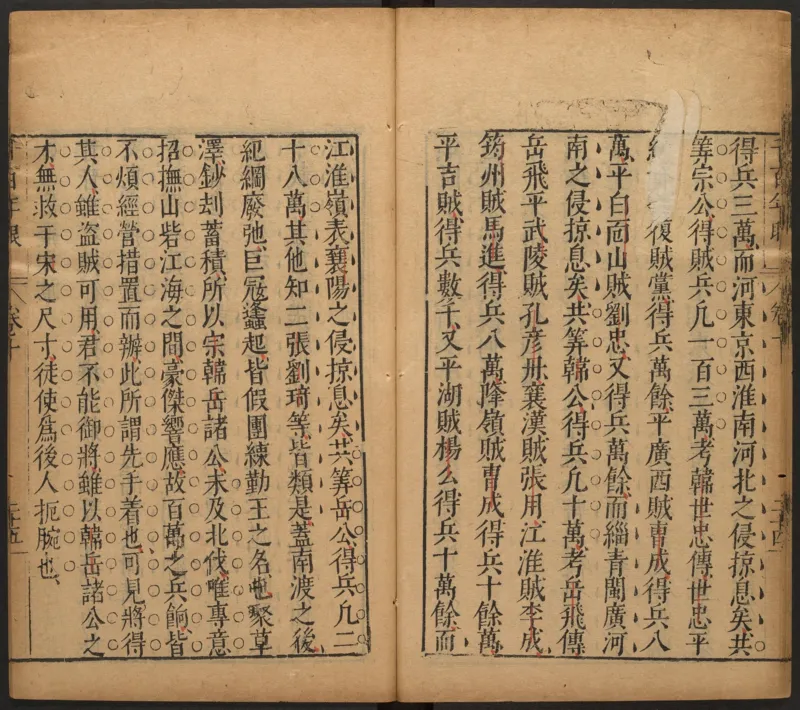 得兵三萬而河東京西淮南河北之侵掠息矣共
筭宗公得賊兵凢一百三萬考韓世忠傳世忠平
復賊黨得兵萬餘平廣西賊曹成得兵八
萬平白靣山賊劉忠又得兵萬餘而緇青閩廣河
南之侵掠息矣共筭韓公得兵凢十萬考岳飛傳
岳飛平武陵賊孔彦舟襄漢賊張用江淮賊李成
筠州賊馬進得兵八萬降嶺賊曹成得兵十餘萬
平吉賊得兵數千又平湖賊楊么得兵十萬餘而
江淮嶺表襄陽之侵掠息矣共筭岳公得兵凢二
十八萬其他知二張劉琦等皆類是蓋南渡之後
紀綱廢弛巨冦蠭起皆假團練勤王之名屯聚草
澤鈔刦蓄積所以宗韓岳諸公未及北伐唯專意
招撫山砦江海之間豪傑響應故百萬之兵餉皆
不煩經營措置而辦此所謂先手着也可見將得
其人雖盜賊可用君不能御將雖以韓岳諸公之
才無救于宋之尺寸徒使爲後人扼腕也
千百年眼
卷十
二十五